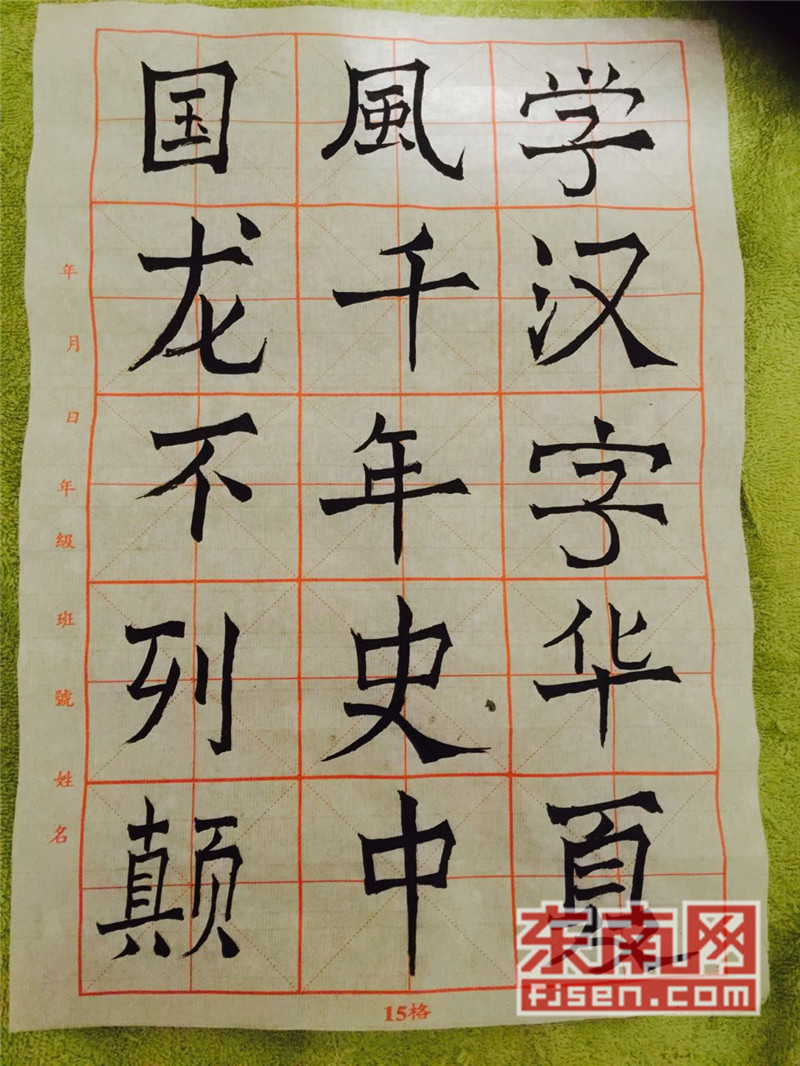 学汉字华夏
風千年史中
国龙不列颠
年 月 日 年級 班 號 姓名
15格
东南网
fjsen.com